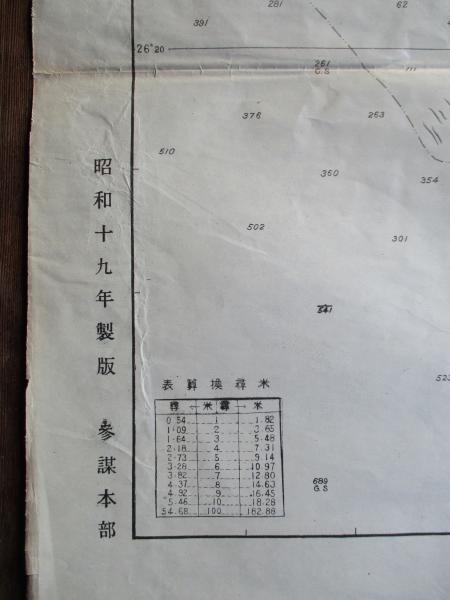 281
62
391
26°20
261
G.S
111
376
263
510
360
354
502
301
昭和十九年製版 參謀本部
表算換尋米
尋 ← 米 尋 → 米
0.54 1 1.82
1.09 2 3.65
1.64 3 5.48
2.18 4 7.31
2.73 5 9.14
3.28 6 10.97
3.82 7 12.80
4.37 8 14.63
4.92 9 16.45
5.46 10 18.28
54.68 100 182.88
689
G.S